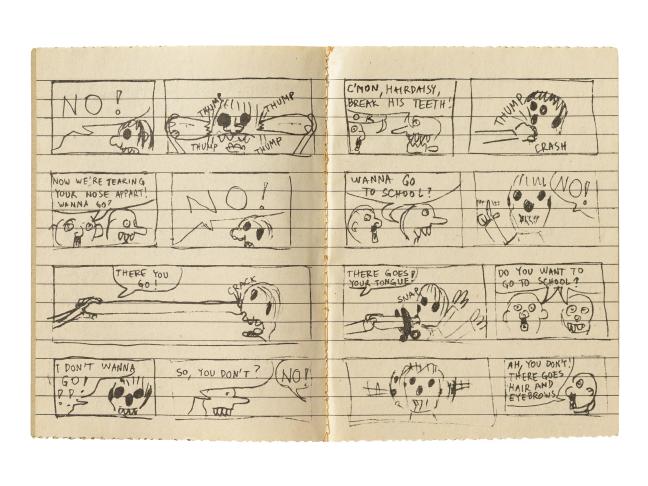 NO!
THUMP
THUMP
THUMP
THUMP
NOW WE'RE TEARING
YOUR NOSE APPART!
WANNA GO?
NO!
THERE YOU
GO!
CRACK
I DON'T WANNA
GO!
SO, YOU DON'T?
NO!
C'MON, HAIRDAISY,
BREAK HIS TEETH!
THUMP
CRASH
WANNA GO
TO SCHOOL?
NO!
THERE GOES
YOUR TONGUE
SNAP
DO YOU WANT TO
GO TO SCHOOL?
AH, YOU DON'T!
THERE GOES
HAIR AND
EYEBROWS